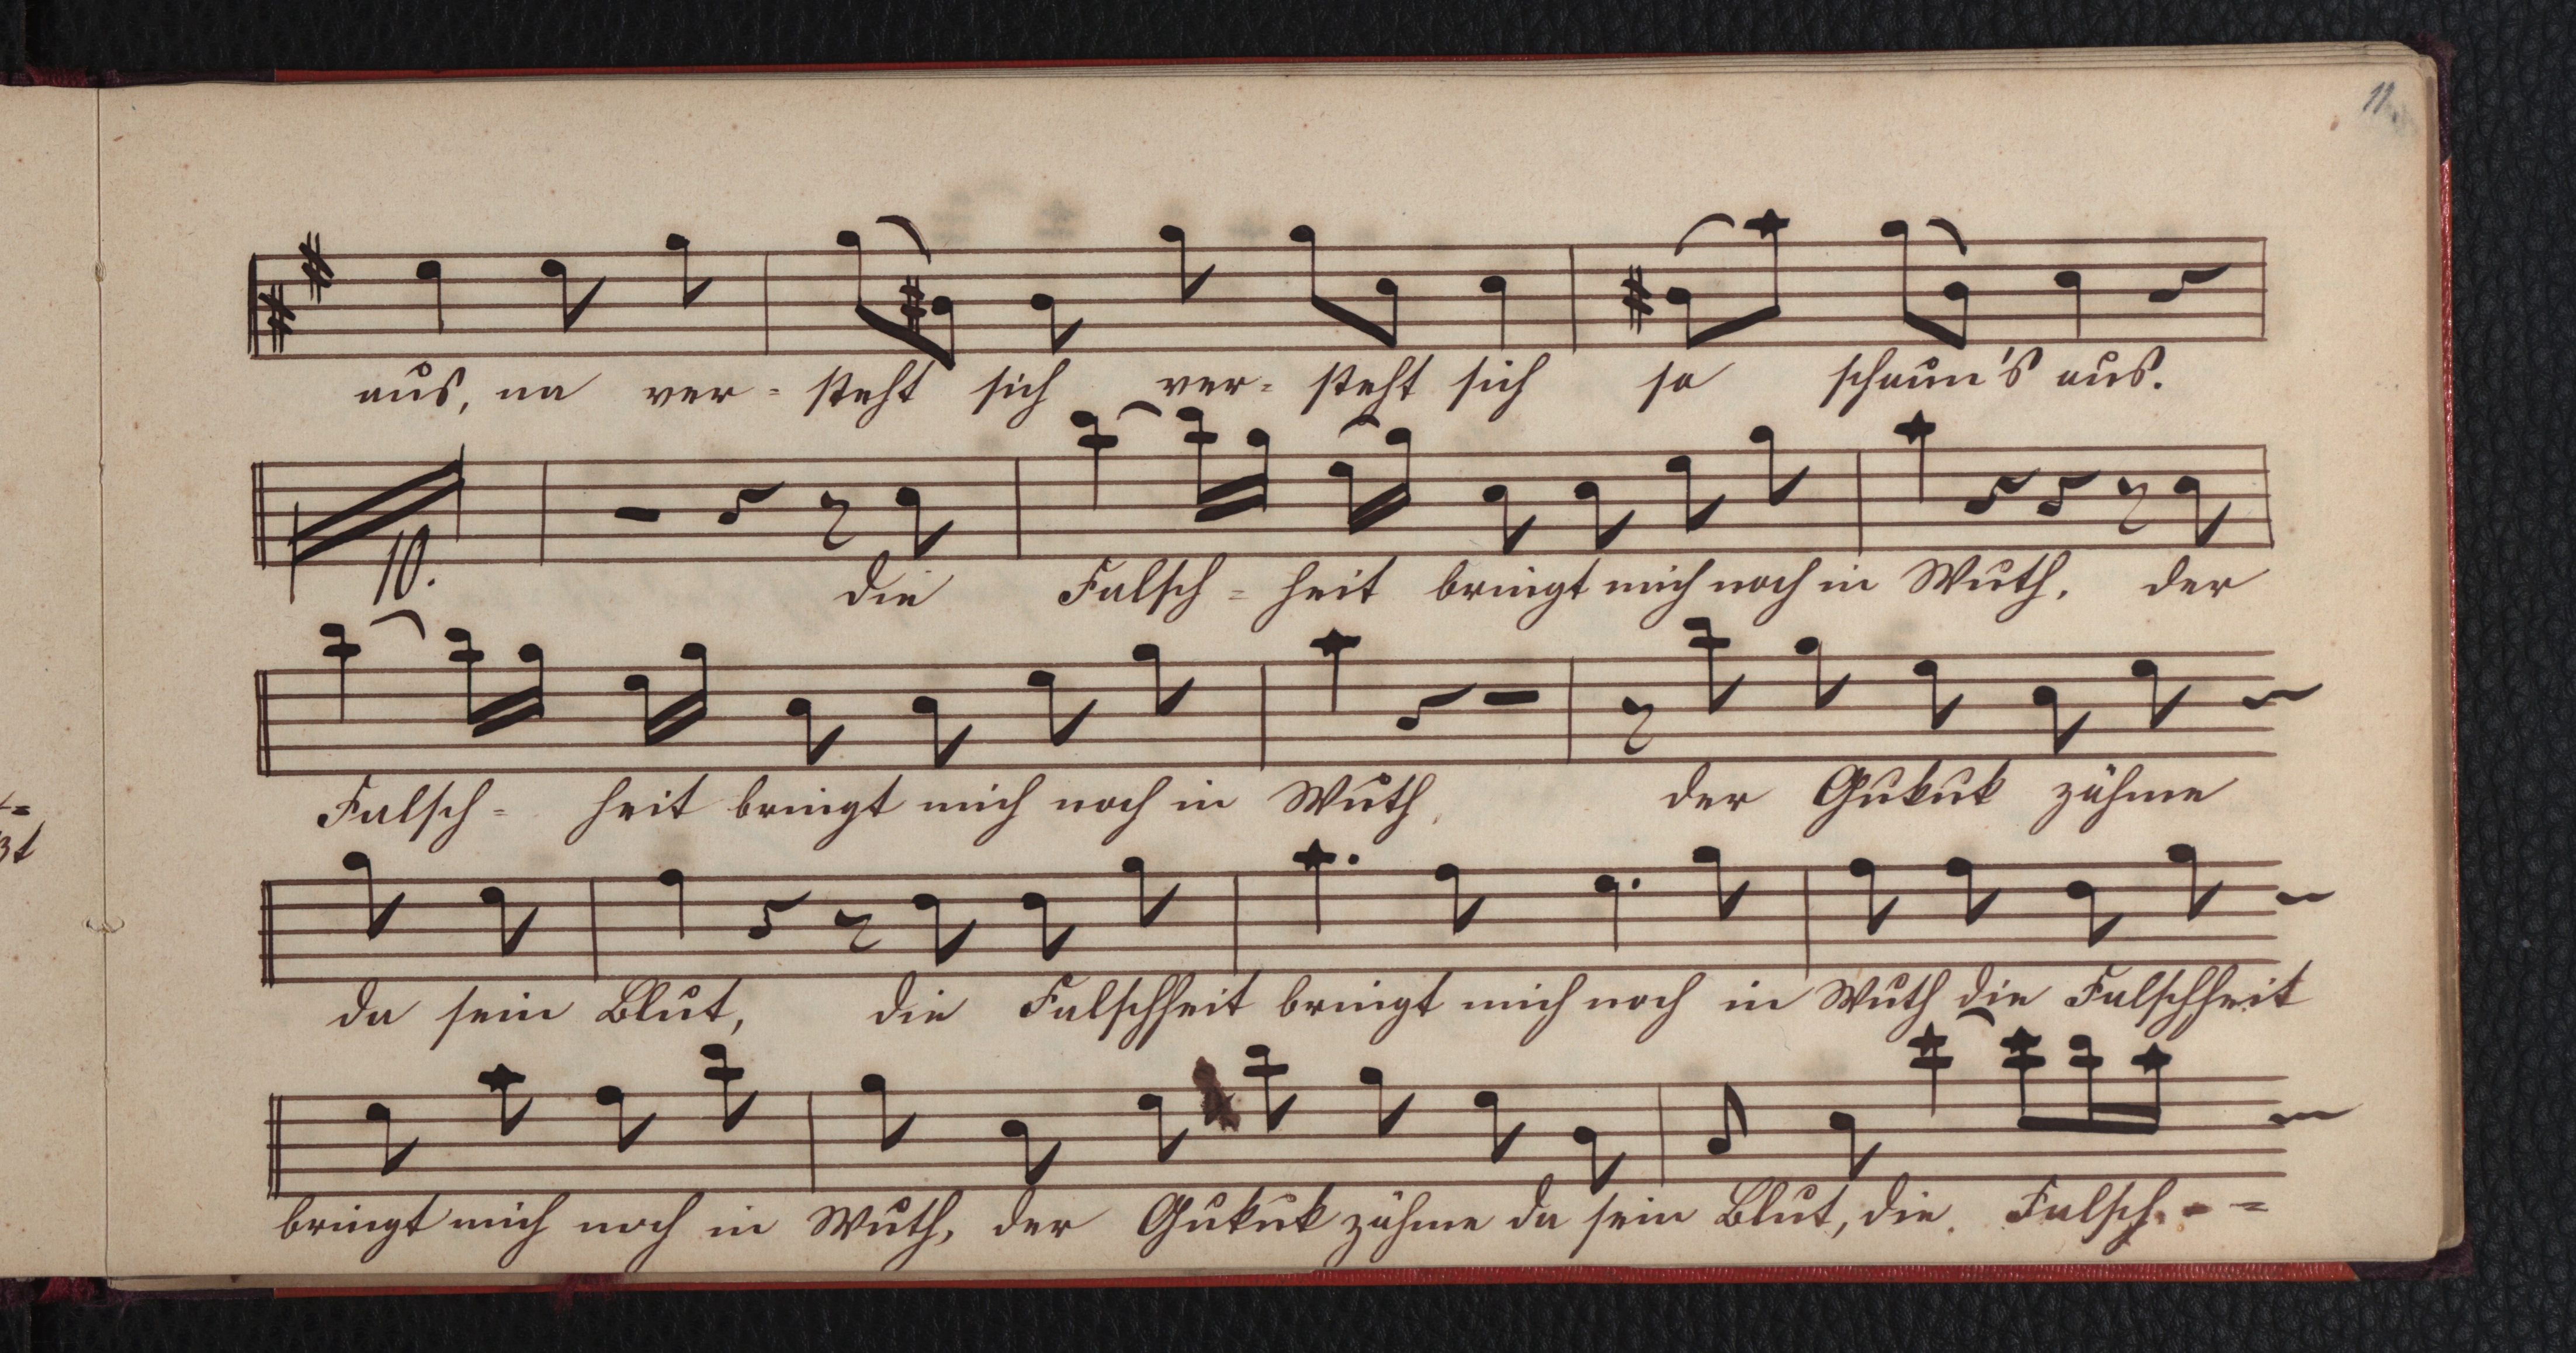 11.
aus, na ver- steht sich ver- steht sich so schaun's aus.
10.
die Falsch- heit bringt mich noch in Wuth, der
Falsch- heit bringt mich noch in Wuth, der Gukuk zähme
da sein Blut, die Falschheit bringt mich noch in Wuth die Falschheit
bringt mich noch in Wuth, der Gukuk zähme da sein Blut, die Falsch- -